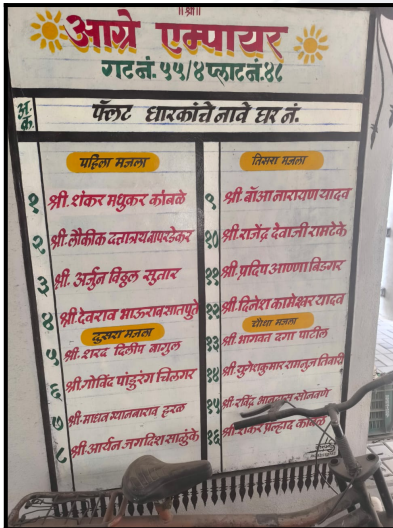 ॥श्री॥
आग्रे एम्पायर
गट नं. ५५/४ प्लाट नं. ४८
अ.क्र. फ्लॅट धारकांचे नावे घर नं.
पहिला मजला
१ श्री. शंकर मधुकर कांबळे
२ श्री. लौकीक दत्तात्रय बापरडेकर
३ श्री. अर्जुन विठ्ठल सुतार
४ श्री. देवराव भाऊराव सातपुते
दुसरा मजला
५ श्री. शरद दिलीप बागुल
६ श्री. गोविंद पांडुरंग चिलगर
७ श्री. माधव ग्यानबाराव हरळ
८ श्री. आर्यन जगदिश साळुंके
तिसरा मजला
९ श्री. बाॅआ नारायण यादव
१० श्री. राजेंद्र देवाजी रामटेके
११ श्री. प्रदिप आण्णा बिडगर
१२ श्री. दिनेश कामेश्वर यादव
चौथा मजला
१३ श्री. भागवत दगा पाटील
१४ श्री. युगेशकुमार रामानुज तिवारी
१५ श्री. रविंद्र सोनवणे
१६ श्री. शंकर प्रल्हाद कांबळे